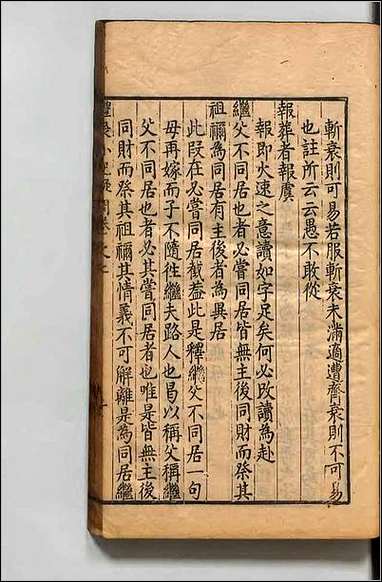 斬衰則可易若服斬衰未滿適遭齊衰則不可易
也註所云云愚不敢從
報葬者報虞
報即火速之意讀如字足矣何必改讀為赴
繼父不同居也者必嘗同居皆無主後同財而祭其
祖禰為同居有主後者為異居
此叚在必嘗同居截葢此是釋繼父不同居一句
母再嫁而子不隨徃繼夫路人也曷以稱父稱繼
父不同居也者必其嘗同居者也唯是皆無主後
同財而祭其祖禰其情義不可解離是為同居繼